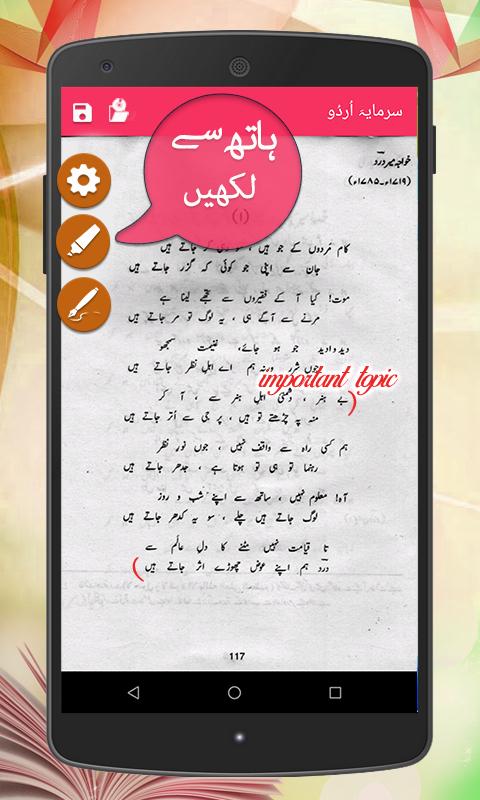 سرمایۂ اُردُو
ہاتھ سے
لکھیں
خواجہ میر درد
(۱۷۱۹ء۔۱۷۸۵ء)
(۱)
کام مَردوں کے جو ہیں ، سو وہی کر جاتے ہیں
جان سے اپنی جو کوئی کہ گزر جاتے ہیں
موت! کیا آ کے فقیروں سے تجھے لینا ہے
مرنے سے آگے ہی ، یہ لوگ تو مر جاتے ہیں
دید وادید جو ہو جائے، غنیمت سمجھو
جوں شرر ورنہ ہم اے اہلِ نظر جاتے ہیں
important topic
بے ہنر ، دشمنی اہلِ ہنر سے ، آ کر
منہ پہ چڑھتے تو ہیں ، پر جی سے اُتر جاتے ہیں
ہم کسی راہ سے واقف نہیں ، جوں نورِ نظر
رہنما تو ہی تو ہوتا ہے ، جدھر جاتے ہیں
آہ! معلوم نہیں ، ساتھ سے اپنے شب و روز
لوگ جاتے ہیں چلے ، سو یہ کدھر جاتے ہیں
تا قیامت نہیں مٹنے کا دلِ عالَم سے
درد ہم اپنے عوض چھوڑے اثر جاتے ہیں
117